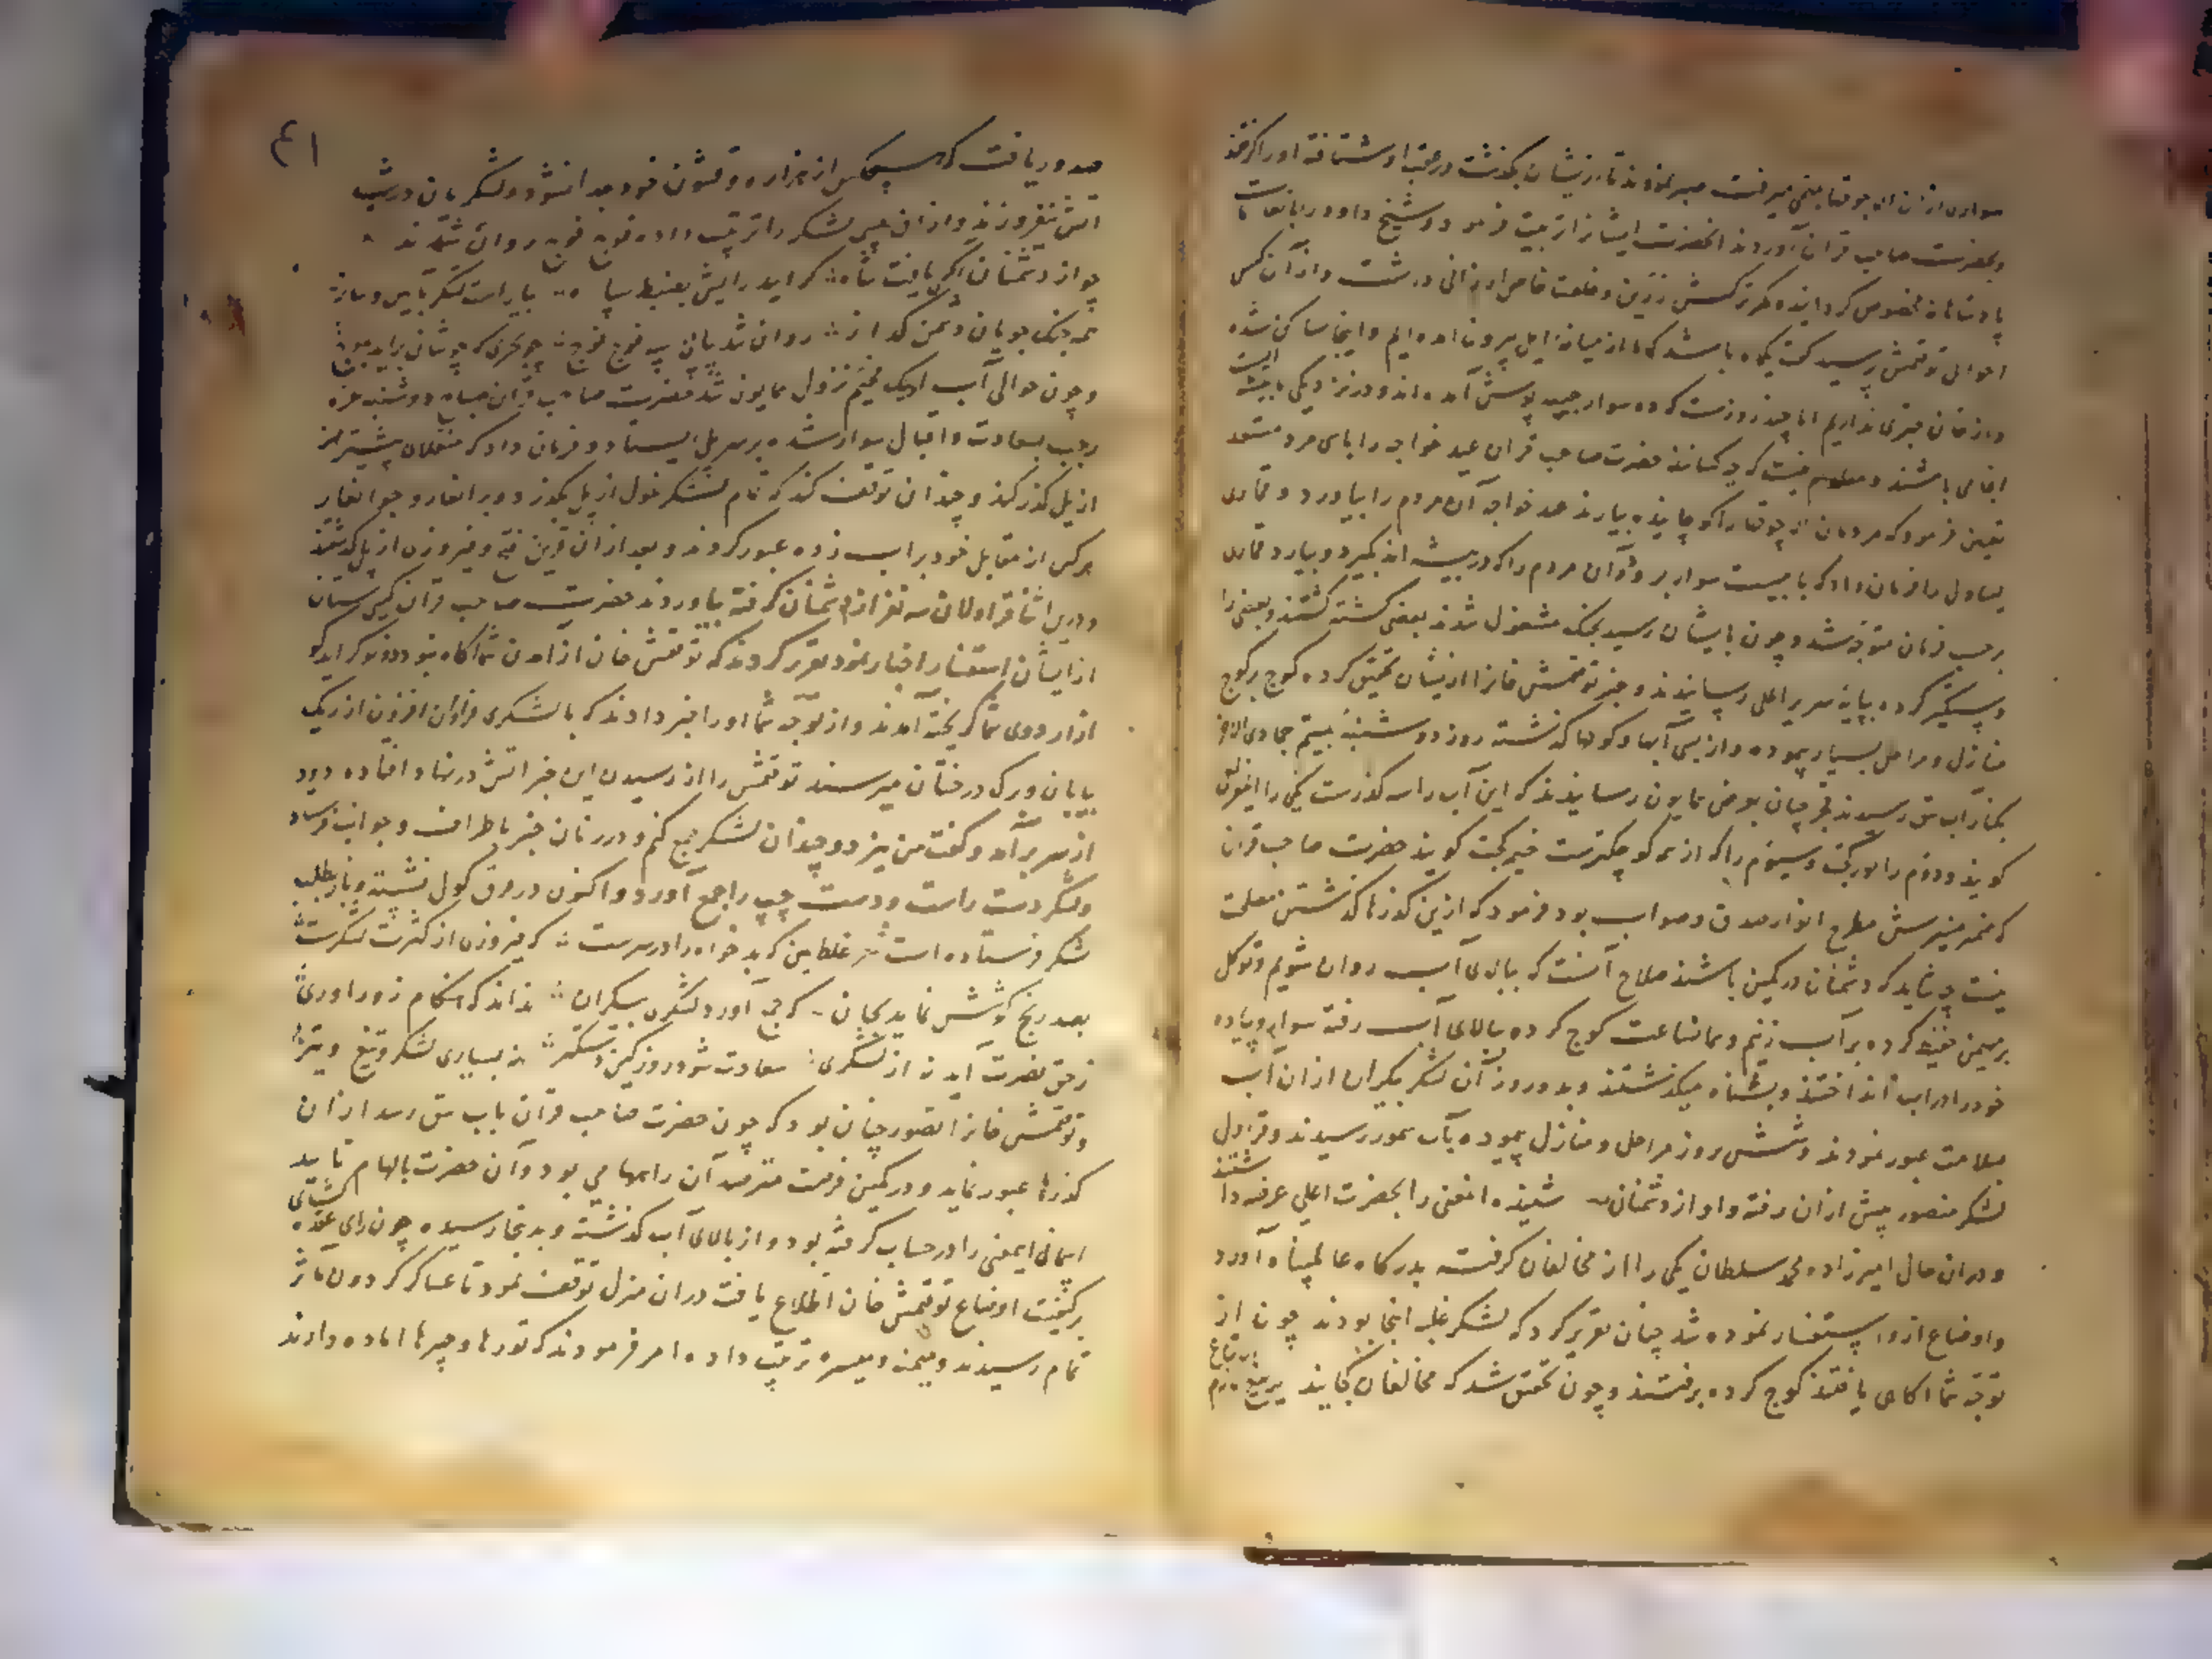 سواری از ان الاچوقها بتخمی میرفت صبر نمودند تا از یشان بگذشت در عقب او شتافته او را گرفتند
و بحضرت صاحب قران آوردند انحضرت ایشانرا تربیت فرمود و شیخ داود را بانعامات
پادشاهانه مخصوص گردانیده کمر ترکش زرین و خلعت خاص ارزانی داشت و از آن کس
احوال توقتمش پرسید گفت یکماه باشد که ما از میانه ایل بیرون امده ایم و اینجا ساکن شده
و از خان خبری نداریم اما چند روزست که ده سوار جیبه پوش آمده اند و در نزدیکی ما بیشه ایست
انجا می باشند و معلوم نیست که چه کسانند حضرت صاحب قران عید خواجه را با سی مرد مستعد
تعیین فرمود که مردمان الاچوقها را کوچانیده بیارند عید خواجه آن مردم را بیاورد و قماری
یساول را فرمان داد که با بیست سوار برود و آن مردم را که در بیشه اند بگیرد و بیارد قماری
بر حسب فرمان متوجه شد و چون بایشان رسید بجنگ مشغول شدند بعضی کشته گشتند و بعضی را
دستگیر کرده بپایه سریر اعلی رسانیدند و خبر توقتمش خانرا از یشان تحقیق کرده کوچ بر کوچ
منازل و مراحل بسیار پیموده و از بسی آبها و کولها گذشته روز دوشنبه بیستم جمادی الاخر
بکنار آب تیق رسیدند غجرچیان بعرض همایون رسانیدند که این آب را سه گذرست یکی را ایغیر یالی
گویند و دوم را بورکچت و سیوم را که از همه کوچکترست چپمه کچت گویند حضرت صاحب قران
که ضمیر منیرش مطرح انوار صدق و صواب بود فرمود که ازین گذرها گذشتن مصلحت
نیست چه شاید که دشمنان در کمین باشند صلاح آنست که ببالای آب روان شویم و توکل
بر مهیمن حفیظ کرده بر آب زنیم و هماساعت کوچ کرده ببالای آب رفته سوار و پیاده
خود را در اب انداختند و بشناه میگذشتند و بدو روز آن لشکر بیکران از ان آب
سلامت عبور نمودند و شش روز مراحل و منازل پیموده بآب سمور رسیدند و قراول
لشکر منصور پیش ازان رفته و آواز دشمنان شنیده انمعنی را بحضرت اعلی عرضه داشتند
و دران حال امیرزاده محمد سلطان یکی را از مخالفان گرفته بدرگاه عالمپناه آورد
و اوضاع ازو استفسار نموده شد چنان تقریر کرد که لشکر غلبه اینجا بودند چون از
توجه شما اکاهی یافتند کوچ کرده برفتند و چون تحقق شد که مخالفان کجایند یرلیغ لازم الاتباع
۴۱
صدور یافت که هیچکس از هزاره و قشون خود جدا نشود و لشکریان در شب
اتش نیفروزند و از ان پس لشکر را ترتیب داده فوج فوج روان شدند
چو از دشمنان اگهی یافت شاه که اید رایش بضبط سپاه بیاراست لشکر بآیین و ساز
همه جنک جویان دشمن گداز روان شد پیاپی سپه فوج فوج چو بحری که جوشان براید بموج
و چون حوالی آب ایک مخیم نزول همایون شد حضرت صاحب قران صباح دوشنبه غره
رجب بسعادت و اقبال سوار شده بر سر پل ایستاد و فرمان داد که منقلای پیشتر
از پل گذر کند و چندان توقف کند که تمام لشکر غول از پل بگذرد و برانغار و جوانغار
هر کس از مقابل خود بر اب زده عبور کردند و بعد از ان قرین فتح و فیروزی از پل گذشتند
و درین اثنا قراولان سه نفر از دشمنان گرفته بیاوردند حضرت صاحب قران گیتی ستان
از ایشان استفسار اخبار نمود تقریر کردند که توقتمش خان از امدن شما اگاه نبود دو نوکر ایدکو
از اردوی شما گریخته آمدند و از توجه شما او را خبر دادند که با لشکری فراوان افزون از ریگ
بیابان و برگ درختان میرسند توقتمش را از رسیدن این خبر اتش در نهاد افتاده دود
از سر برآمد و گفت من نیز دو چندان لشکر جمع کنم و در زمان خبر باطراف و جوانب فرستاد
و لشکر دست راست و دست چپ را جمع آورد و اکنون در قرق کول نشسته و باز بطلب
لشکر فرستاده است غلط بین که بدخواه را در سرست که فیروزی از کثرت لشکرست
بصد رنج کوشش نماید بجان که جمع آورد لشکر بیکران نداند که هنگام زور اوری
ز حق نصرت آید نه از لشکری سعادت شود روز کین دستگیر نه بسیاری لشکر و تیغ و تیر
و توقتمش خانرا تصور چنان بود که چون حضرت صاحب قران باب تیق رسد از ان
گذرها عبور نماید و در کمین فرصت مترصد آن راهها می بود و آن حضرت بالهام تایید
اسمانی اینمعنی را در حساب گرفته بود و از بالای آب گذشته و بدینجا رسیده چون رای عقده گشای
بر کیفیت اوضاع توقتمش خان اطلاع یافت دران منزل توقف نمود تا عساکر گردون ماثر
تمام رسیدند و میمنه و میسره ترتیب داده امر فرمودند که تورها و چپرها اماده دارند